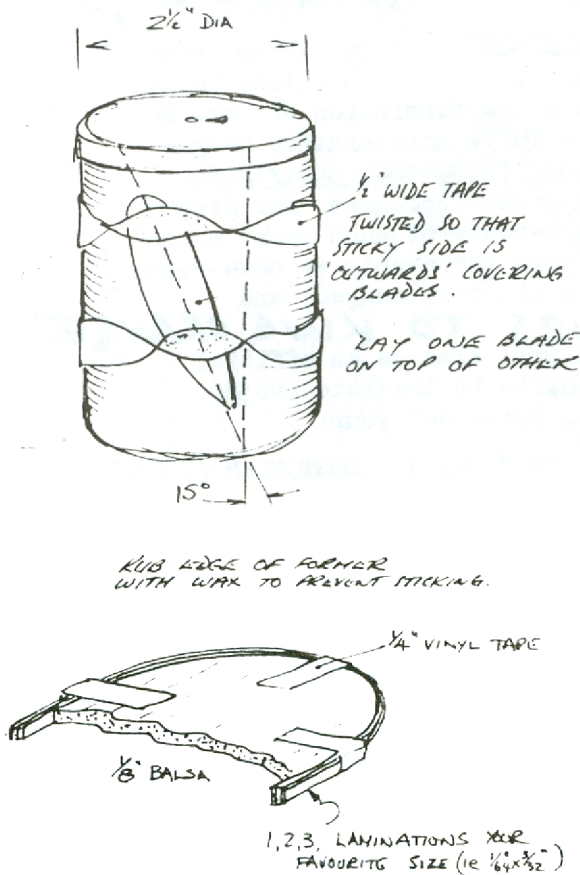 2½" DIA
½" WIDE TAPE
TWISTED SO THAT
STICKY SIDE IS
'OUTWARDS' COVERING
BLADES.
LAY ONE BLADE
ON TOP OF OTHER
15°
RUB EDGE OF FORMER
WITH WAX TO PREVENT STICKING.
¼" VINYL TAPE
⅛" BALSA
1,2,3, LAMINATIONS YOUR
FAVOURITE SIZE (ie 1/64"x3/32")